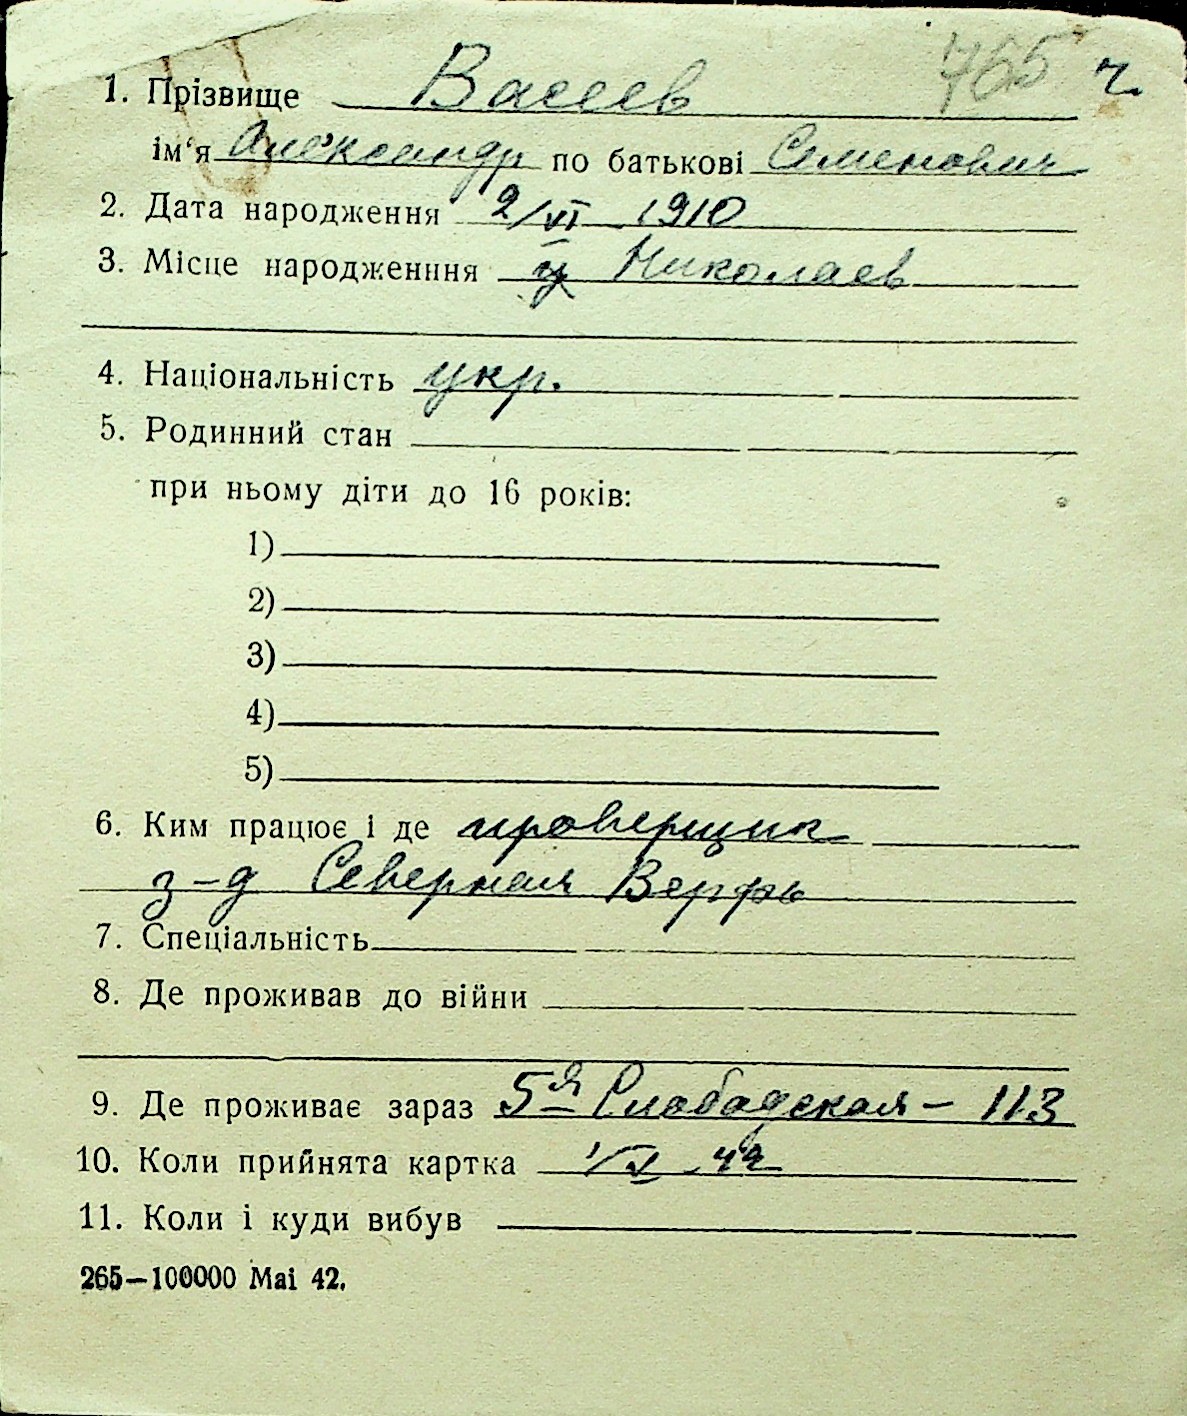 765 ч.
1. Прізвище Васеев
ім‘я Александр по батькові Семенович
2. Дата народження 2/VI 1910
3. Місце народженння Николаев
4. Національність укр.
5. Родинний стан
при ньому діти до 16 років:
1)
2)
3)
4)
5)
6. Ким працює і де проверщик
з-д Северная Верфь
7. Спеціальність
8. Де проживав до війни
9. Де проживає зараз 5я Слободская - 113
10. Коли прийнята картка
11. Коли і куди вибув
265—100000 Mai 42.